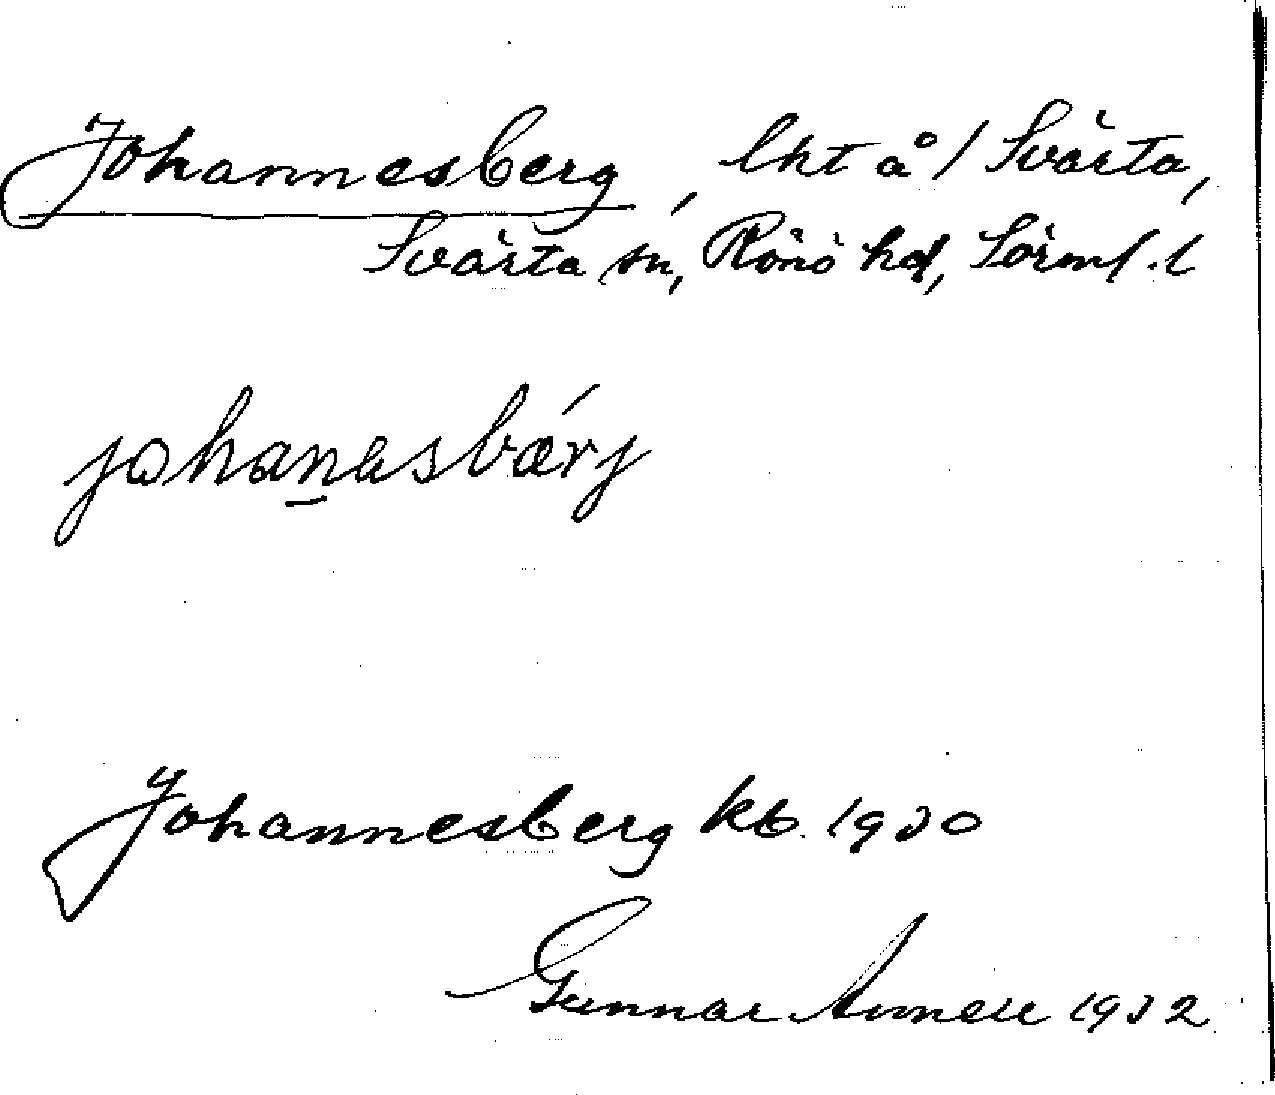 Johannesberg, lht å/ Svärta,
Svärta sn, Rönö hd, Sörml. l
johan̲esbǽrj
Johannesberg kb. 1930
Gunnar 1932